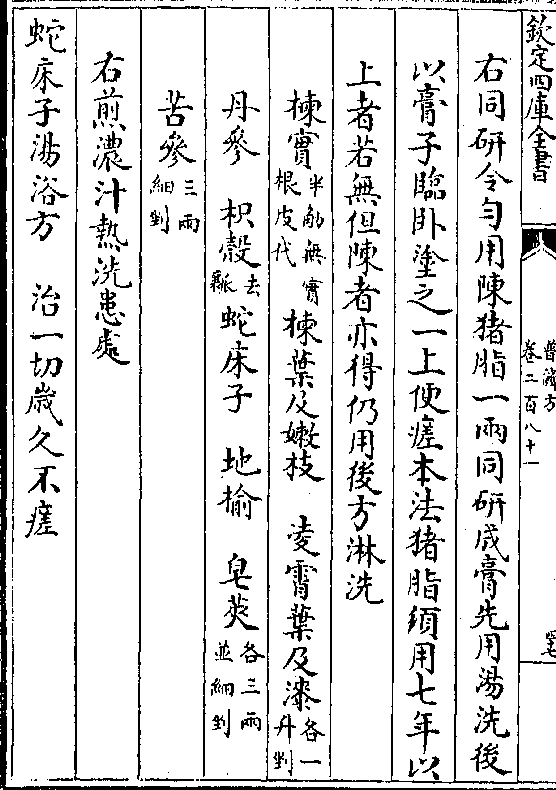 欽定四庫全書
普濟方
卷二百八十一
右同研令勻用陳猪脂一兩同研成膏先用湯洗後
以膏子臨卧塗之一上便瘥本法猪脂須用七年以
上者若無但陳者亦得仍用後方淋洗
楝實半觔無實根皮代 楝葉及嫩枝 凌霄葉及漆各一升剉
丹參 枳殻去瓤 蛇床子 地榆 皂莢各三兩並細剉
苦參三兩細剉
右煎濃汁熱洗患處
蛇床子湯浴方 治一切歲久不瘥